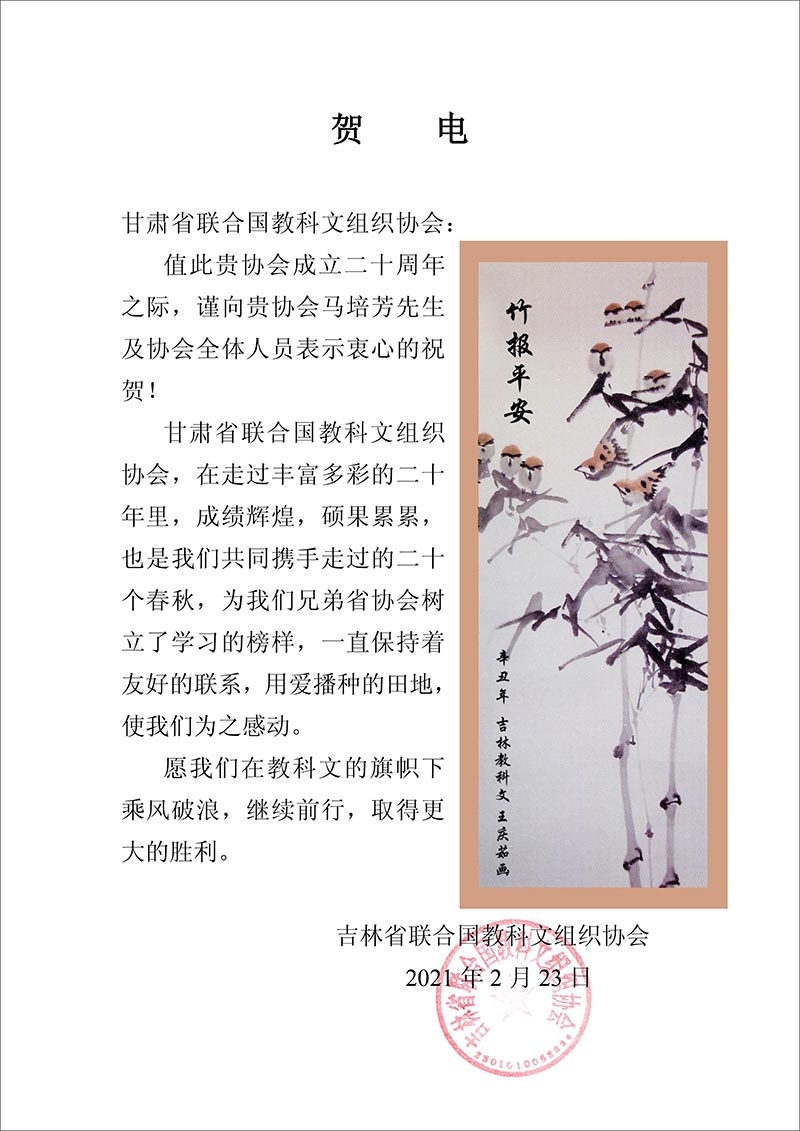 贺 电
甘肃省联合国教科文组织协会：
值此贵协会成立二十周年
之际，谨向贵协会马培芳先生
及协会全体人员表示衷心的祝
贺！
甘肃省联合国教科文组织
协会，在走过丰富多彩的二十
年里，成绩辉煌，硕果累累，
也是我们共同携手走过的二十
个春秋，为我们兄弟省协会树
立了学习的榜样，一直保持着
友好的联系，用爱播种的田地，
使我们为之感动。
愿我们在教科文的旗帜下
乘风破浪，继续前行，取得更
大的胜利。
竹报平安
辛丑年 吉林教科文 王庆茹画
吉林省联合国教科文组织协会
2021 年 2 月 23 日
吉林省联合国教科文组织协会